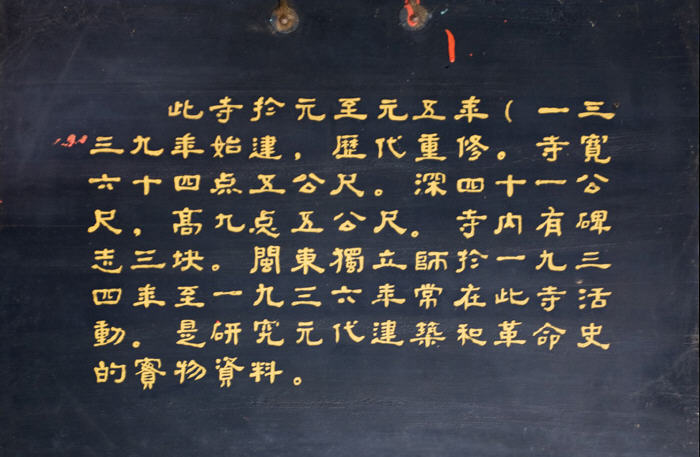 此寺於元至元五年(一三
三九年始建,歷代重修。寺寬
六十四点五公尺。深四十一公
尺,高九点五公尺。寺內有碑
志三块。閩東獨立師於一九三
四年至一九三六年常在此寺活
動。是研究元代建築和革命史
的實物資料。